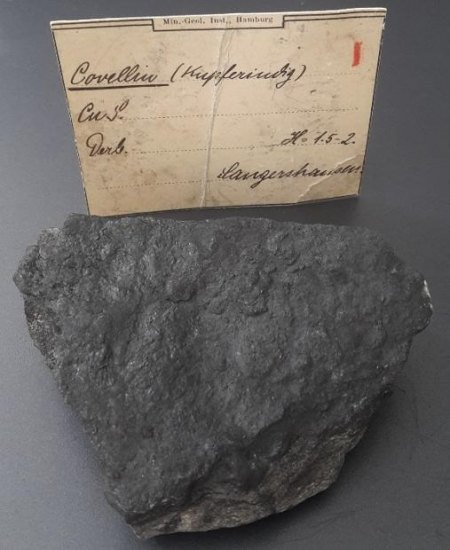 Min.-Geol. Inst., Hamburg
I
Covellin (Kupferindig)
CuS.
Derb. H=1.5-2.
Sangershausen